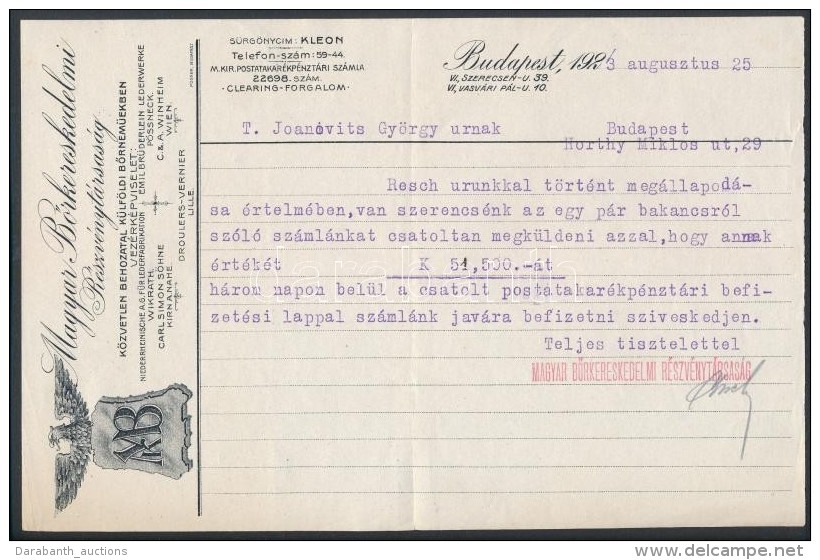 Magyar Bőrkereskedelmi
Részvénytársaság
KÖZVETLEN BEHOZATAL KÜLFÖLDI BŐRNEMÜEKBEN
VEZÉRKÉPVISELET:
NIEDERRHEINISCHE A.G. FÜR LEDERFABRIKATION
WIKRATH.
CARL SIMON SÖHNE
KIRN A. NAHE.
EMIL BRÜDERLEIN LEDERWERKE
PÖSSNECK.
C. & A. WINHEIM
WIEN.
DROULERS-VERNIER
LILLE.
MB
SÜRGÖNYCIM: KLEON
Telefon-szám: 59-44.
M. KIR. POSTATAKARÉKPÉNZTÁRI SZÁMLA
22698. SZÁM.
· CLEARING-FORGALOM ·
Budapest, 1923 augusztus 25
VI, SZERECSEN-U. 39.
VI, VASVÁRI PÁL-U. 10.
T. Joanovits György urnak Budapest
Horthy Miklos ut, 29
Resch urunkkal történt megállapodá-
sa értelmében, van szerencsénk az egy pár bakancsról
szóló számlánkat csatoltan megküldeni azzal, hogy annak
értékét K 51,500.-át
három napon belül a csatolt postatakarékpénztári befi-
zetési lappal számlánk javára befizetni sziveskedjen.
Teljes tisztelettel
MAGYAR BŐRKERESKEDELMI RÉSZVÉNYTÁRSASÁG
Darabanth_auctions
© delcampe.net